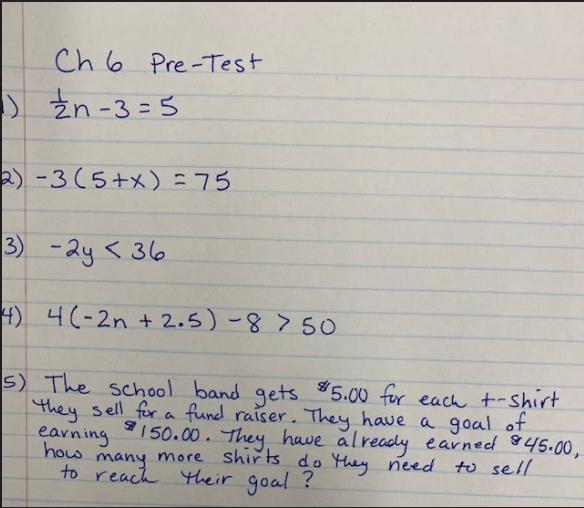 Ch 6 Pre-Test
1) ½n - 3 = 5
2) -3(5+x) = 75
3) -2y < 36
4) 4(-2n + 2.5) - 8 > 50
5) The school band gets $5.00 for each t-shirt
they sell for a fund raiser. They have a goal of
earning $150.00. They have already earned $45.00,
how many more shirts do they need to sell
to reach their goal?